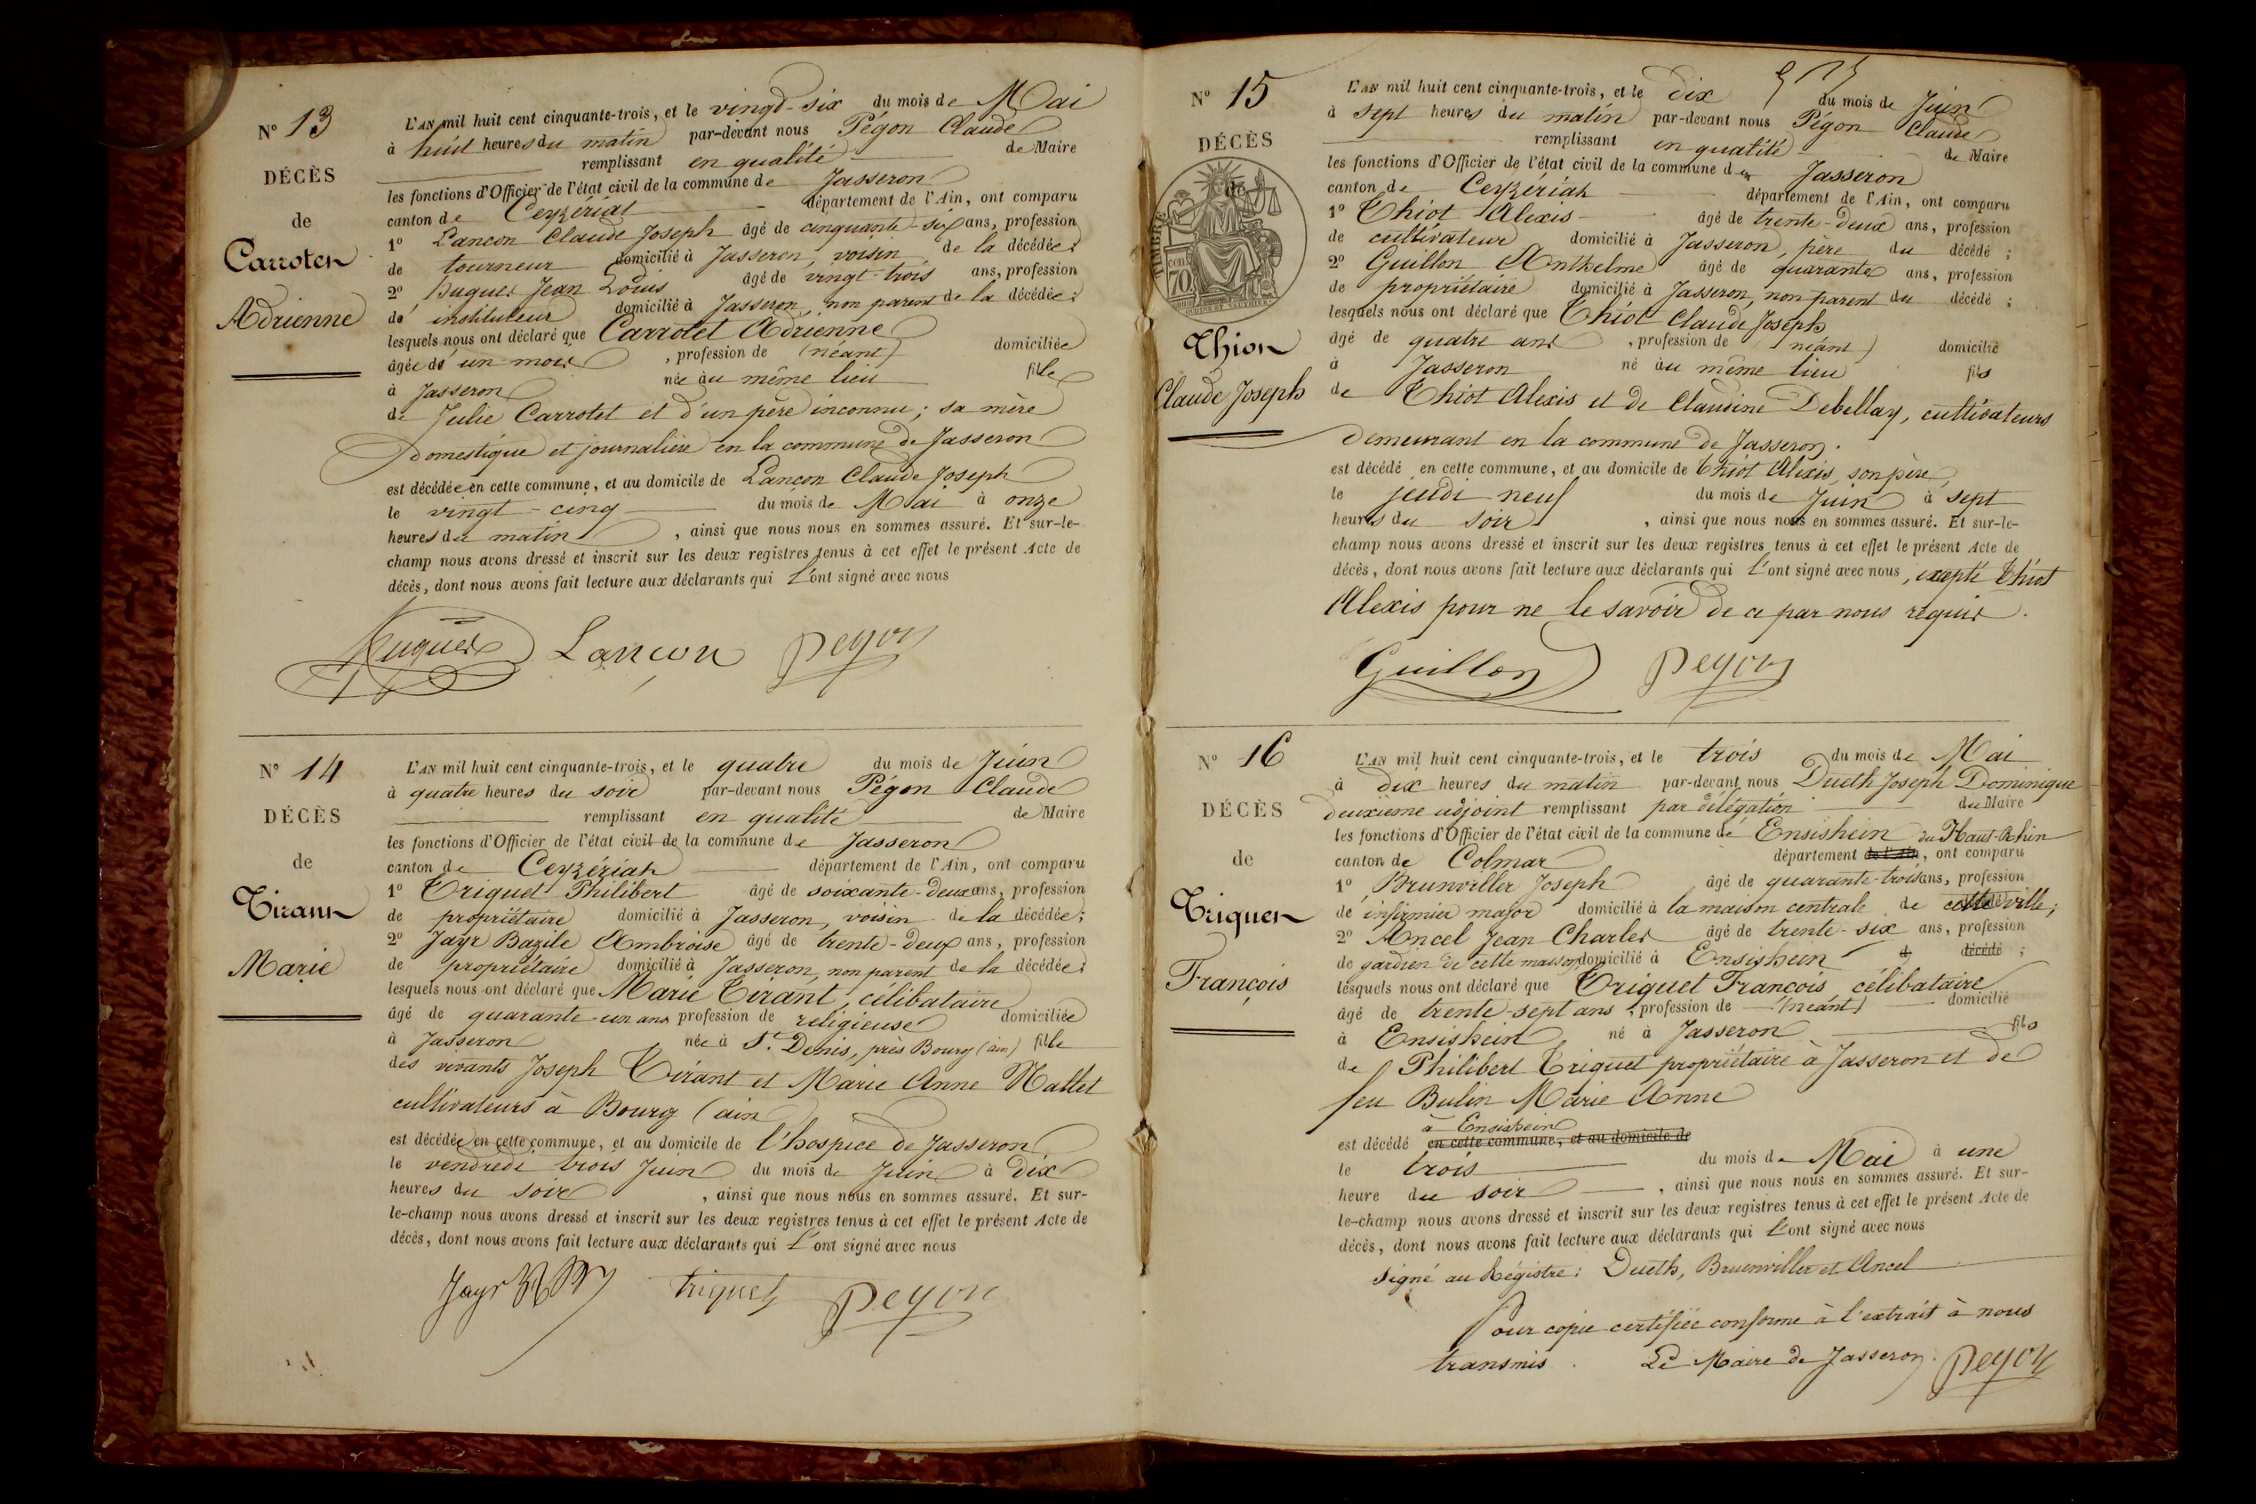 N° 13
DÉCÈS
de
Carroten
Adrienne
L'AN mil huit cent cinquante-trois, et le vingt-six du mois de Mai
à huit heures du matin par-devant nous Pégon Claude
remplissant en qualité de Maire
les fonctions d'Officier de l'état civil de la commune de Jasseron
canton de Ceyzériat département de l'Ain, ont comparu
1° Lancon Claude Joseph âgé de cinquante-six ans, profession
de tourneur domicilié à Jasseron, voisin de la décédée;
2° Huguet Jean Louis âgé de vingt-trois ans, profession
de instituteur domicilié à Jasseron, non parent de la décédée;
lesquels nous ont déclaré que Carrotet Adrienne
âgée de un mois, profession de (néant) domiciliée
à Jasseron née au même lieu fille
de Julie Carrotet et d'un père inconnu; sa mère
domestique et journalière en la commune de Jasseron
est décédée en cette commune, et au domicile de Lancon Claude Joseph
le vingt-cinq du mois de Mai à onze
heures du matin, ainsi que nous nous en sommes assuré. Et sur-le-
champ nous avons dressé et inscrit sur les deux registres tenus à cet effet le présent Acte de
décès, dont nous avons fait lecture aux déclarants qui l'ont signé avec nous
Huguet Lançon Pegon
N° 14
DÉCÈS
de
Tirann
Marie
L'AN mil huit cent cinquante-trois, et le quatre du mois de Juin
à quatre heures du soir par-devant nous Pégon Claude
remplissant en qualité de Maire
les fonctions d'Officier de l'état civil de la commune de Jasseron
canton de Ceyzériat département de l'Ain, ont comparu
1° Triquet Philibert âgé de soixante-deux ans, profession
de propriétaire domicilié à Jasseron, voisin de la décédée;
2° Jayr Bazile Ambroise âgé de trente-deux ans, profession
de propriétaire domicilié à Jasseron, non parent de la décédée;
lesquels nous ont déclaré que Marie Tirant, célibataire
âgé de quarante-un ans profession de religieuse domiciliée
à Jasseron née à St. Denis, près Bourg (ain) fille
des vivants Joseph Tirant et Marie Anne Nallet
cultivateurs à Bourg (ain)
est décédée en cette commune, et au domicile de l'hospice de Jasseron
le vendredi trois Juin du mois de Juin à dix
heures du soir, ainsi que nous nous en sommes assuré. Et sur-
le-champ nous avons dressé et inscrit sur les deux registres tenus à cet effet le présent Acte de
décès, dont nous avons fait lecture aux déclarants qui l'ont signé avec nous
Jayr triquet Pegon
N° 15
DÉCÈS
de
TIMBRE
70
Thion
Claude Joseph
L'AN mil huit cent cinquante-trois, et le dix du mois de Juin
à sept heures du matin par-devant nous Pégon Claude
remplissant en qualité de Maire
les fonctions d'Officier de l'état civil de la commune de Jasseron
canton de Ceyzériat département de l'Ain, ont comparu
1° Thiot Alexis âgé de trente-deux ans, profession
de cultivateur domicilié à Jasseron, père du décédé;
2° Guillon Anthelme âgé de quarante ans, profession
de propriétaire domicilié à Jasseron, non parent du décédé;
lesquels nous ont déclaré que Thiot Claude Joseph
âgé de quatre ans, profession de (néant) domicilié
à Jasseron né au même lieu fils
de Thiot Alexis et de Claudine Debellay, cultivateurs
demeurant en la commune de Jasseron.
est décédé en cette commune, et au domicile de Thiot Alexis, son père,
le jeudi neuf du mois de Juin à sept
heures du soir, ainsi que nous nous en sommes assuré. Et sur-le-
champ nous avons dressé et inscrit sur les deux registres tenus à cet effet le présent Acte de
décès, dont nous avons fait lecture aux déclarants qui l'ont signé avec nous, excepté Thiot
Alexis pour ne le savoir de ce par nous requis.
Guillon Pegon
N° 16
DÉCÈS
de
Triquen
François
L'AN mil huit cent cinquante-trois, et le trois du mois de Mai
à dix heures du matin par-devant nous Dueth Joseph Dominique
deuxième adjoint remplissant par délégation du Maire
les fonctions d'Officier de l'état civil de la commune de Ensishein du Haut-Rhin
canton de Colmar département de l'Ain, ont comparu
1° Brunviller Joseph âgé de quarante-trois ans, profession
de infirmier major domicilié à la maison centrale de cette ville;
2° Ancel Jean Charles âgé de trente-six ans, profession
de gardien de cette maison domicilié à Ensishein d décédé;
lesquels nous ont déclaré que Triquet François, célibataire
âgé de trente-sept ans, profession de (néant) domicilié
à Ensishein né à Jasseron fils
de Philibert Triquet propriétaire à Jasseron et de
feu Bulin Marie Anne
à Ensishein
est décédé en cette commune, et au domicile de
le trois du mois de Mai à une
heure du soir, ainsi que nous nous en sommes assuré. Et sur-
le-champ nous avons dressé et inscrit sur les deux registres tenus à cet effet le présent Acte de
décès, dont nous avons fait lecture aux déclarants qui l'ont signé avec nous
Signé au Régistre: Dueth, Bruenviller et Ancel
Pour copie certifiée conforme à l'extrait à nous
transmis. Le Maire de Jasseron. Pegon